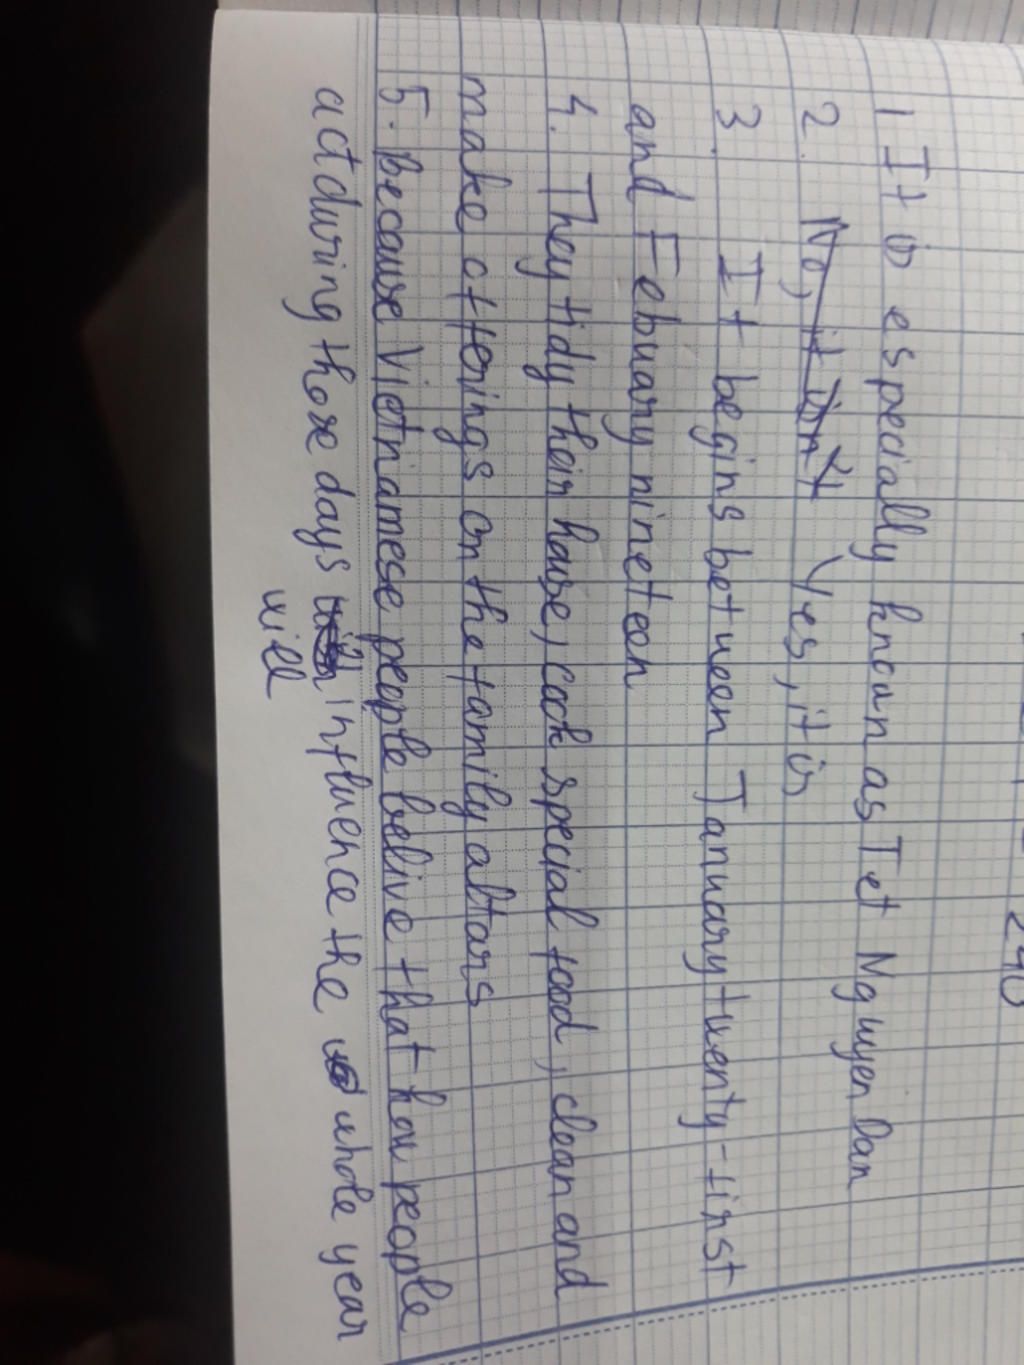 240
1 It is especially known as Tet Nguyen Dan
2. No, it isn't Yes, it is
3. It begins between January twenty-first
and Febuary nineteen
4. They tidy their house, cook special food, clean and
make offerings on the family altars
5. because Vietnamese people belive that how people
act during those days will influence the whole year